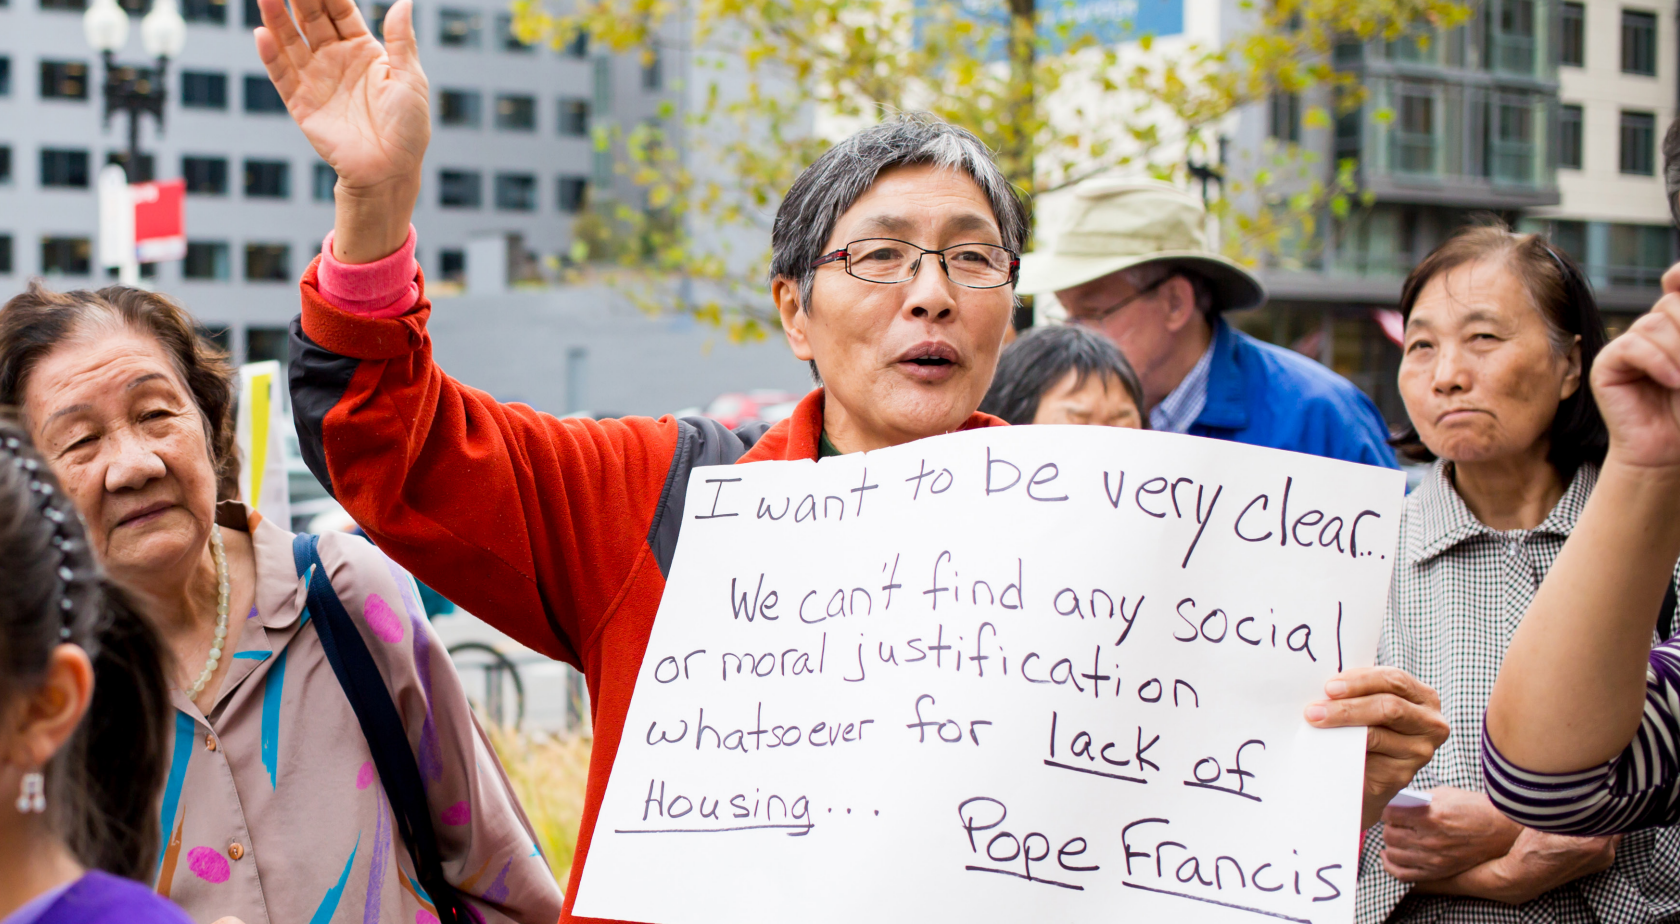 I want to be very clear...
We can't find any social
or moral justification
whatsoever for lack of
Housing...
Pope Francis